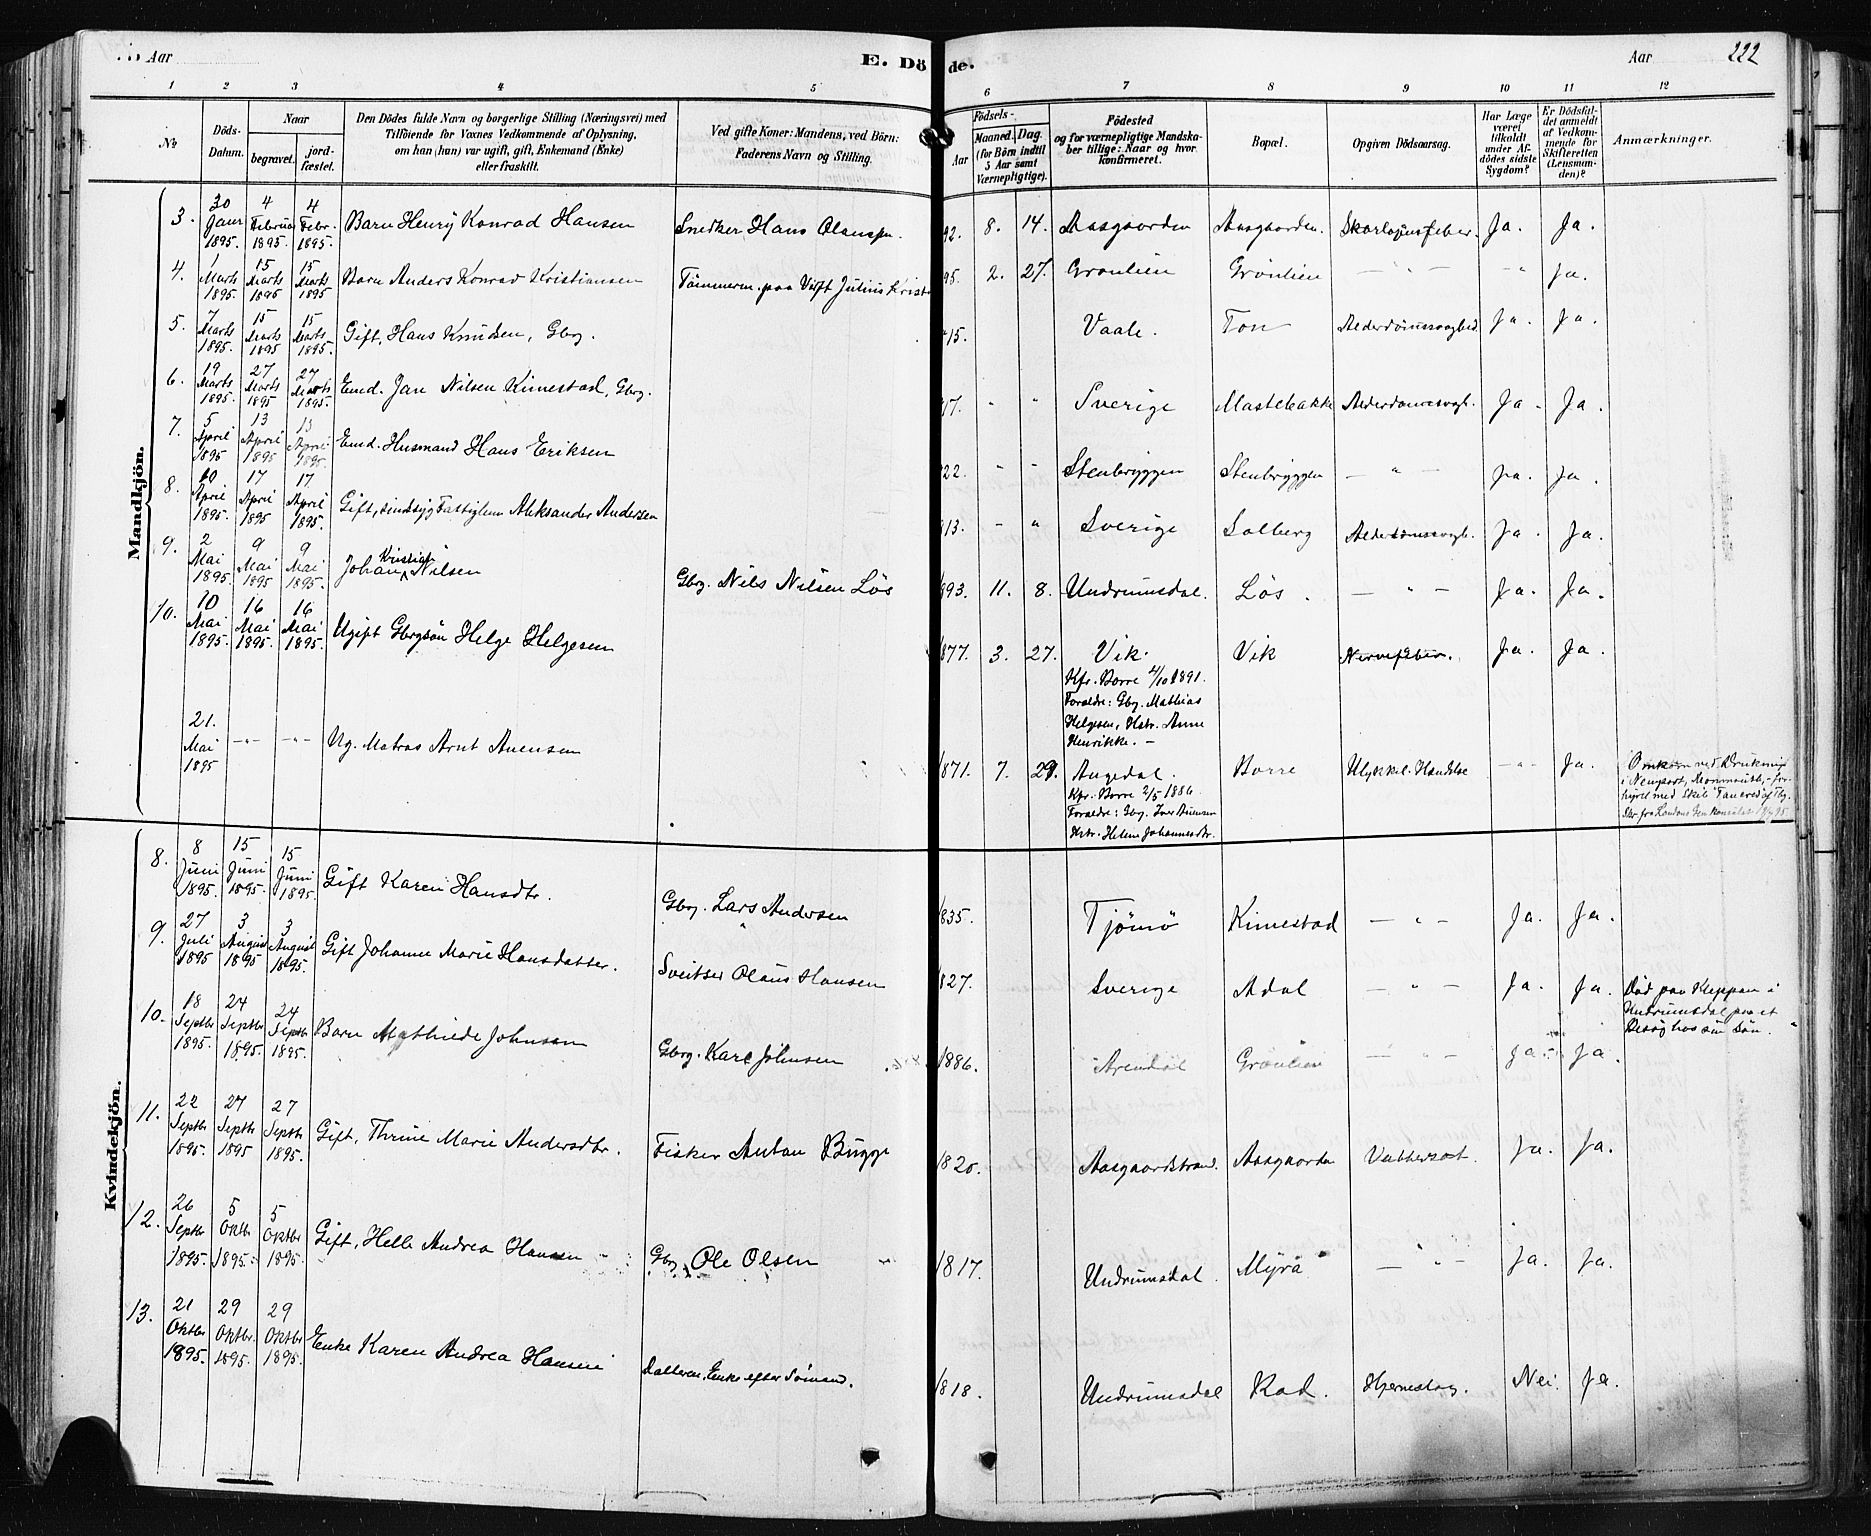 Aar
E. Döde.
Aar
222
1 2 3 4 5 6 7 8 9 10 11 12
No
Döds-Datum.
Naar
begravet.
jordfæstet.
Den Dödes fulde Navn og borgerlige Stilling (Næringsvei) med
Tilföiende for Voxnes Vedkommende af Oplysning,
om han (hun) var ugift, gift, Enkemand (Enke)
eller fraskilt.
Ved gifte Koner: Mandens, ved Börn:
Faderens Navn og Stilling.
Födsels-
Aar
Maaned. Dag.
(for Börn indtil
5 Aar samt
Værnepligtige).
Födested
og for værnepligtige Mandska-
ber tillige: Naar og hvor
konfirmeret.
Bopæl.
Opgiven Dödsaarsag.
Har Læge
været
tilkaldt
under Af-
dödes sidste
Sygdom?
Er Dödsfal-
det anmeldt
af Vedkom-
mende for
Skifteretten
(Lensman-
den)?
Anmærkninger.
Mandkjön.
3. 30 Januar 1895. 4 Februar 1895. 4 Febr. 1895. Barn Henry Konrad Hansen Snedker Hans Olausen. 92. 8. 14. Aasgaarden Aasgaarden. Skarlagensfeber. Ja. Ja.
4. 1 Marts 1895. 15 Marts 1895 15 Marts 1895 Barn Anders Konrad Kristiansen Tömmerm. paa Værft Julius Krist 95. 2. 27. Grönlien Grönlien — " — - " Ja.
5. 7 Marts 1895. 15 Marts 1895 15 Marts 1895. Gift, Hans Knudsen, Gbrg. 15. Vaale. Ton Alderdomssvaghed. Ja. Ja.
6. 19 Marts 1895. 27 Marts 1895 27 Marts 1895. Emd. Jan Nilsen Kimestad, Gbrg. 17. " " Sverige Mastebakke Alderdomssvagh. Ja. Ja.
7. 5 April 1895 13 April 1895 13 April 1895. Emd. Husmand Hans Eriksen 22. - - Stenbryggen Stenbryggen — " — Ja. Ja.
8. 10 April 1895. 17 April 1895 17 April 1895. Gift, sindssyg Fattiglem Aleksander Andersen 813. - " Sverige Solberg Alderdomssvagh. Ja. Ja.
9. 2 Mai 1895. 9 Mai 1895 9 Mai 1895. Johan Kristian Nilsen Gbrg. Nils Nilsen Lös 893. 11. 8. Undrumsdal. Lös. — " — Ja. Ja.
10. 10 Mai 1895. 16 Mai 1895. 16 Mai 1895. Ugift Gbrgsön Helge Helgesen 877. 3. 27. Vik. Vik Nervefeber. Ja. Ja.
Kfr. Borre 4/10 1891.
Forældre: Gbg. Mathias
Helgesen, Hstr. Anne
Henrikke. —
21. Mai 1895 -"- -"- Ug. Matros Arnt Auensen 1871. 7. 29. Augedal. Borre Ulykkel. Hændelse -"- Ja.
Kfr. Borre 2/5 1886.
Forældre: Gbg. Iver Auensen
Hstr. Helene Johannesdtr.
Omkom ved Drukning
i Newport, Monmouth, - for-
hyret med Skib "Tancred" af Tbg.
Skr. fra Londons Genkonsulat
Kvindekjön.
8. 8 Juni 1895. 15 Juni 1895. 15 Juni 1895. Gift Karen Hansdtr. Gbrg. Lars Andersen 1835. Tjömö Kimestad — " — Ja. Ja.
9. 27 Juli 1895 3 August 1895 3 August 1895. Gift Johanne Marie Hansdatter. Sveitser Olaus Hansen 1827. Sverige Adal — " — Ja. Ja.
Död paa Kleppan i
Undrumsdal paa et
Besög hos sin Sön.
10. 18 Septbr 1895. 24 Septbr 1895. 24 Septbr 1895. Barn Mathilde Johnsen Gbrg. Karl Johnsen 1886. Arendal Grönlien - " - Ja. Ja.
11. 22 Septbr 1895. 27 Septbr 1895 27 Septbr 1895. Gift, Thrine Marie Andersdtr. Fisker Anton Bugge 1820. Aasgaardstrand. Aasgaarden Vattersot. Ja. Ja.
12. 26 Septbr 1895. 5 Oktbr 1895. 5 Oktbr 1895. Gift, Helle Andrea Hansen Gbg. Ole Olsen 1817. Undrumsdal. Myra — " — Ja. Ja.
13. 21 Oktbr 1895. 29 Oktbr. 1895. 29 Oktbr 1895. Enke Karen Andrea Hansen Enke efter Sömand. 1818. Undrumsdal Rød. Hjerneslag. Nei. Ja.